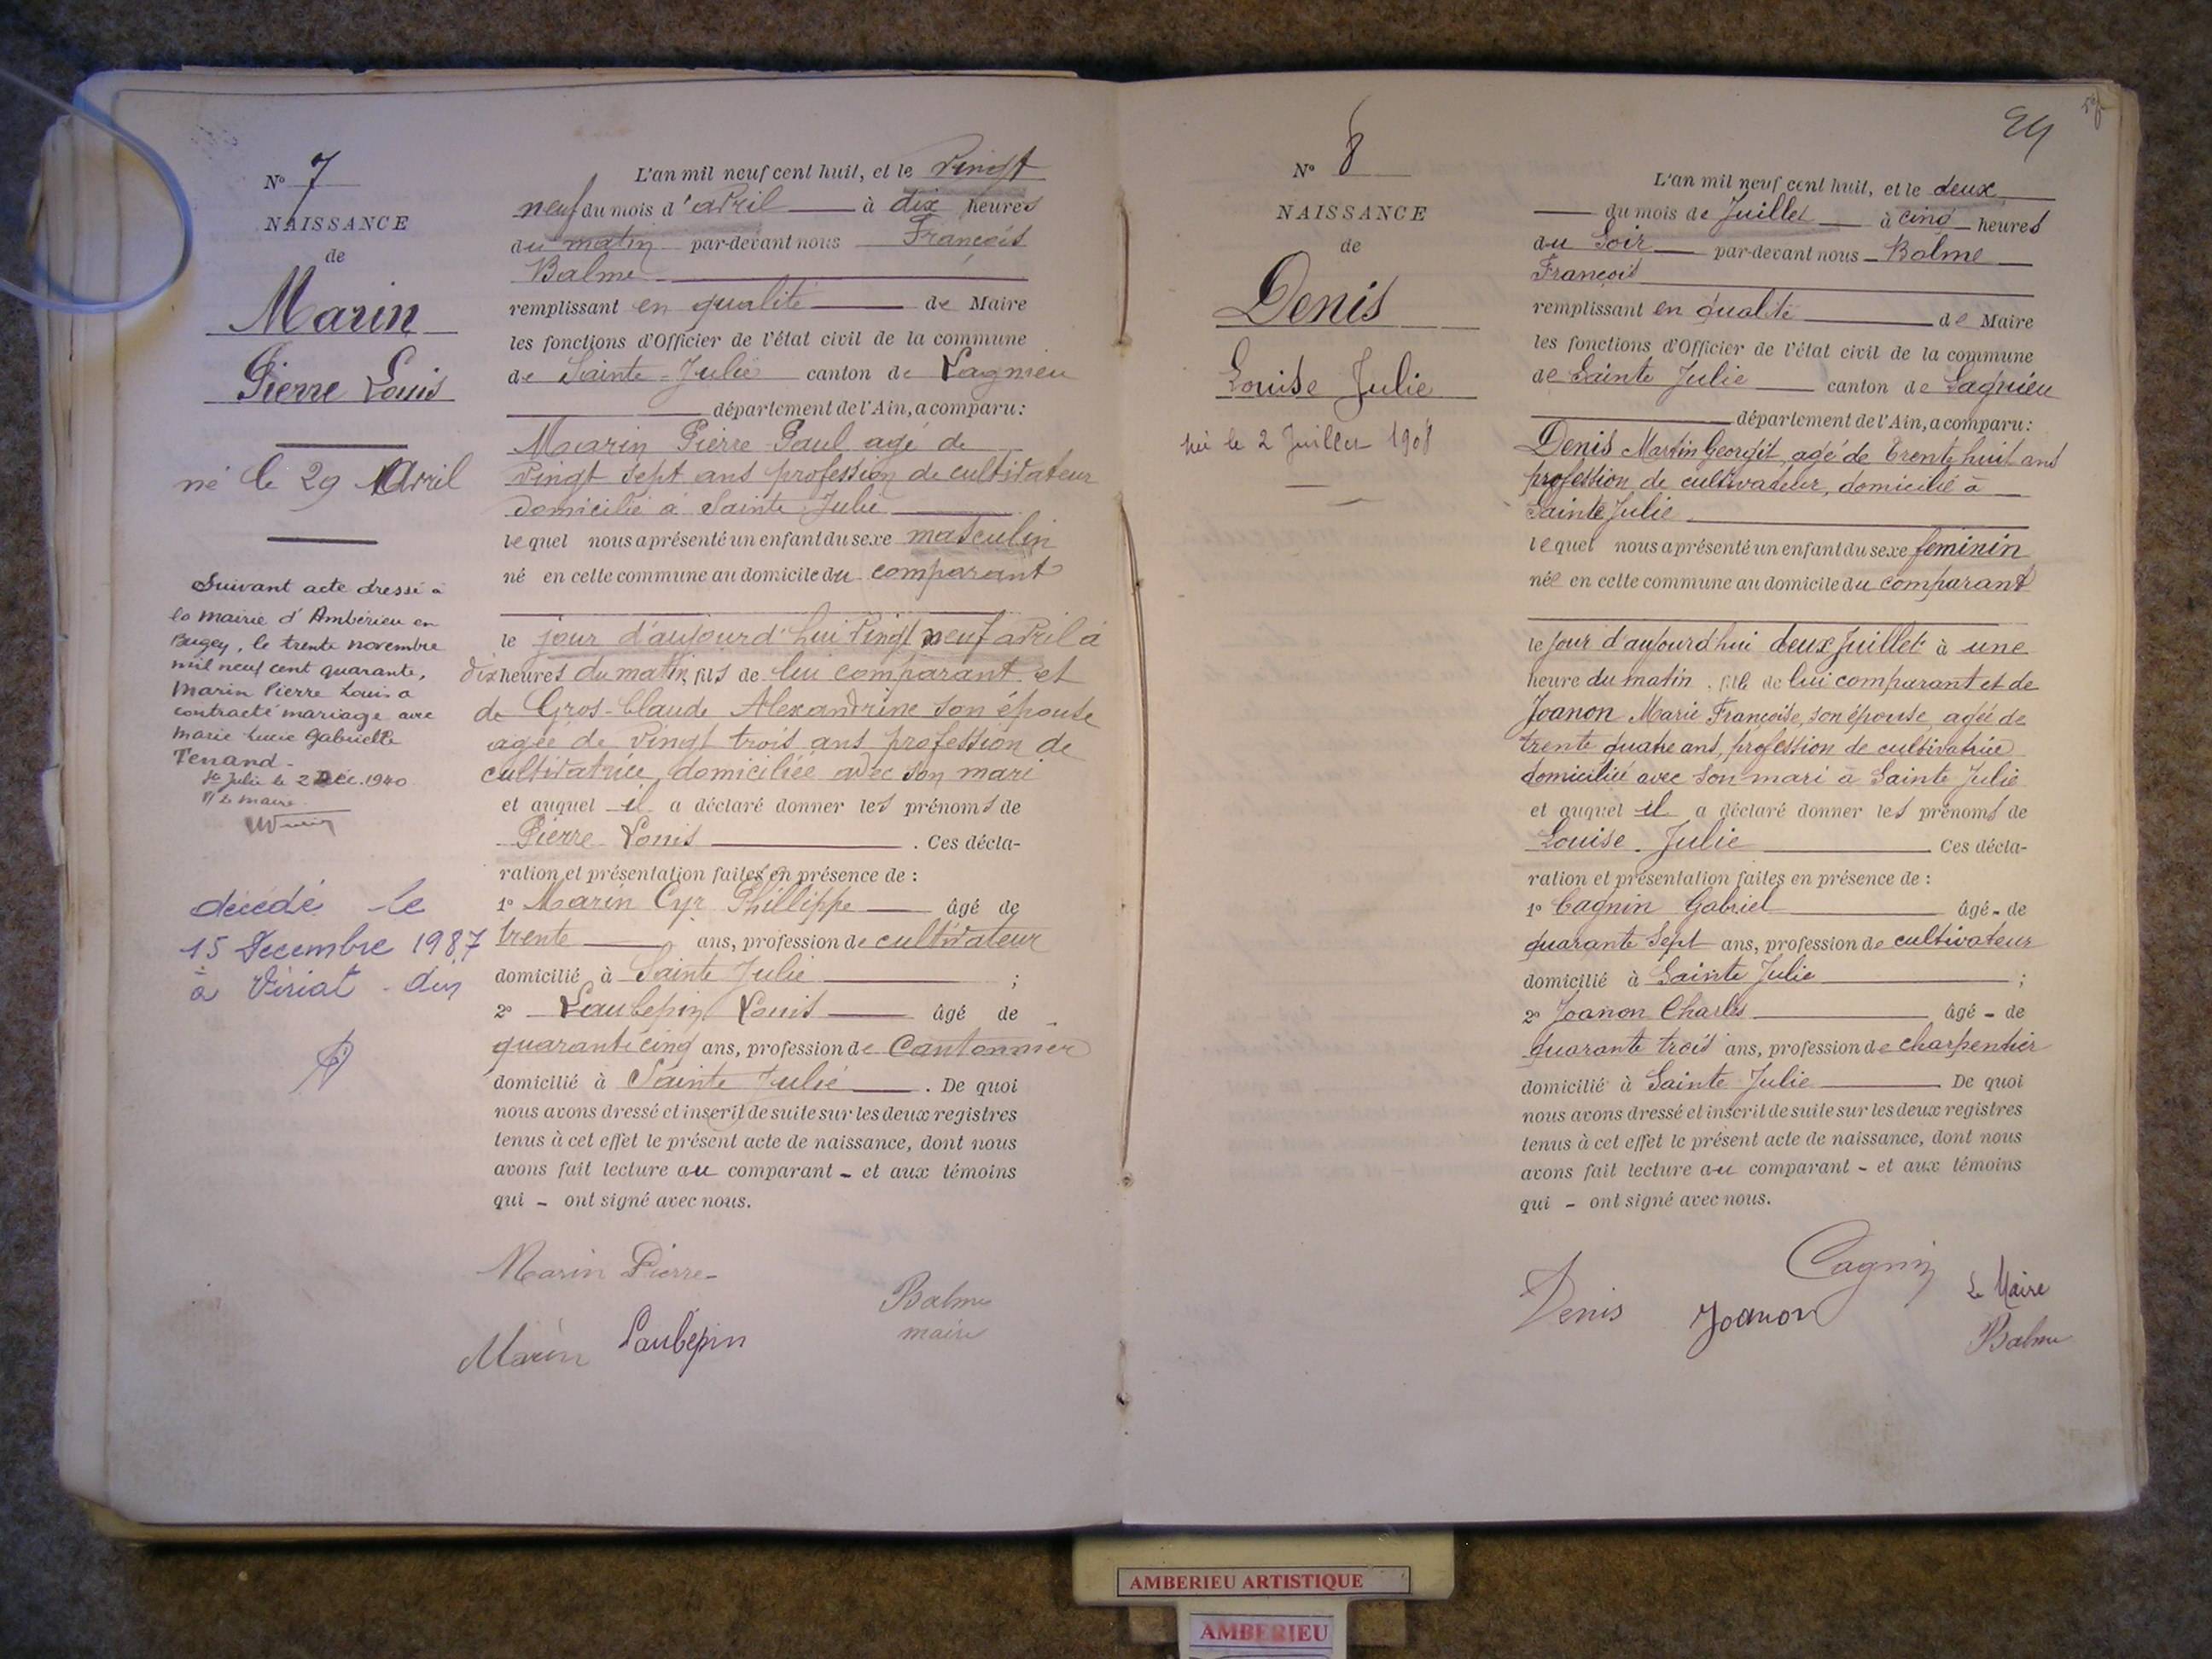 N° 7
NAISSANCE
de
Marin
Pierre Louis
né le 29 Avril
Suivant acte dressé à
la mairie d'Ambérieu en
Bugey, le trente novembre
mil neuf cent quarante,
Marin Pierre Louis a
contracté mariage avec
Marie Lucie Gabrielle
Tenand.
Ste Julie le 2 Déc. 1940
Le maire
décédé le
15 Decembre 1987
à Viriat
L'an mil neuf cent huit, et le vingt
neuf du mois d'avril à dix heures
du matin par-devant nous François
Balme
remplissant en qualité de Maire
les fonctions d'Officier de l'état civil de la commune
de Sainte-Julie canton de Lagnieu
département de l'Ain, a comparu:
Marin Pierre Paul agé de
vingt sept ans profession de cultivateur
domicilié à Sainte Julie
lequel nous a présenté un enfant du sexe masculin
né en cette commune au domicile du comparant
le jour d'aujourd'hui vingt neuf avril à
dix heures du matin, fils de lui comparant et
de Gros-Claude Alexandrine son épouse
agée de vingt trois ans profession de
cultivatrice, domiciliée avec son mari
et auquel il a déclaré donner les prénoms de
Pierre Louis . Ces décla-
ration et présentation faites en présence de :
1° Marin Cyr Phillippe âgé de
trente ans, profession de cultivateur
domicilié à Sainte Julie ;
2° Laubepin Louis âgé de
quarante cinq ans, profession de Cantonnier
domicilié à Sainte Julie . De quoi
nous avons dressé et inscrit de suite sur les deux registres
tenus à cet effet le présent acte de naissance, dont nous
avons fait lecture au comparant - et aux témoins
qui - ont signé avec nous.
Marin Pierre
Balme
maire
Marin Laubépin
24
N° 8
NAISSANCE
de
Denis
Louise Julie
né le 2 Juillet 1908
L'an mil neuf cent huit, et le deux
du mois de Juillet à cinq heures
du Soir par-devant nous Balme
François
remplissant en qualité de Maire
les fonctions d'Officier de l'état civil de la commune
de Sainte Julie canton de Lagnieu
département de l'Ain, a comparu:
Denis Martin Georgit, agé de trente huit ans
profession de cultivateur, domicilié à
Sainte Julie
lequel nous a présenté un enfant du sexe feminin
née en cette commune au domicile du comparant
le jour d'aujourd'hui deux Juillet à une
heure du matin, fille de lui comparant et de
Joanon Marie Françoise, son épouse agée de
trente quatre ans, profession de cultivatrice
domiciliée avec son mari à Sainte Julie
et auquel il a déclaré donner les prénoms de
Louise Julie Ces décla-
ration et présentation faites en présence de :
1° Cagnin Gabriel âgé - de
quarante sept ans, profession de cultivateur
domicilié à Sainte Julie ;
2° Joanon Charles âgé - de
quarante trois ans, profession de charpentier
domicilié à Sainte Julie De quoi
nous avons dressé et inscrit de suite sur les deux registres
tenus à cet effet le présent acte de naissance, dont nous
avons fait lecture au comparant - et aux témoins
qui - ont signé avec nous.
Cagnin
Denis Joanon
Le Maire
Balme
AMBERIEU ARTISTIQUE
AMBERIEU